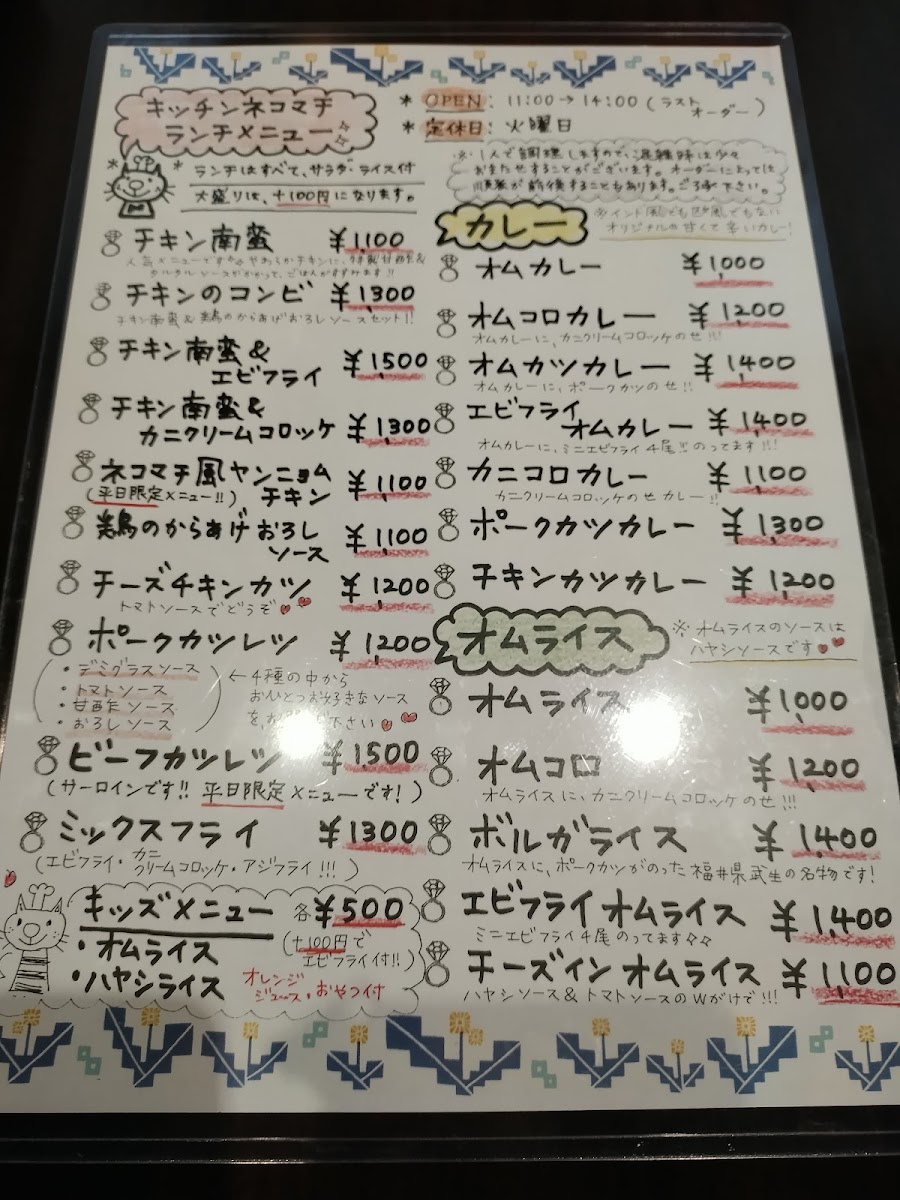 キッチンネコマチ
ランチメニュー
* OPEN: 11:00→14:00 (ラストオーダー)
* 定休日: 火曜日
ランチはすべて、サラダ・ライス付
大盛りは、+100円になります。
※1人で調理しますので、混雑時は少々
おまたせすることがございます。オーダーによっては
順番が前後することもあります。ご了承下さい。
チキン南蛮 ¥1,100
チキンのコンビ ¥1,300
チキン南蛮&鶏のからあげおろしソースセット!!
チキン南蛮&
エビフライ ¥1,500
チキン南蛮&
カニクリームコロッケ ¥1,300
ネコマチ風ヤンニョム
(平日限定メニュー!!) チキン ¥1,100
鶏のからあげおろし
ソース ¥1,100
チーズチキンカツ ¥1,200
トマトソースでどうぞ
ポークカツレツ ¥1,200
・デミグラスソース
・トマトソース
・甘酢ソース
・おろしソース
←4種の中から
おひとつお好きなソース
を、 下さい
ビーフカツレツ ¥1,500
(サーロインです!! 平日限定メニューです!)
ミックスフライ ¥1,300
(エビフライ・カニクリームコロッケ・アジフライ!!!)
キッズメニュー 各¥500
・オムライス
・ハヤシライス
(+100円で
エビフライ付!!)
オレンジ
ジュース・おやつ付
カレー
※インド風でも欧風でもない
オリジナルの甘くて辛いカレー!
オムカレー ¥1,000
オムコロカレー ¥1,200
オムカレーに、カニクリームコロッケのせ!!!
オムカツカレー ¥1,400
オムカレーに、ポークカツのせ!!
エビフライ
オムカレー ¥1,400
オムカレーに、ミニエビフライ4尾!!のってます!!!
カニコロカレー ¥1,100
カニクリームコロッケのせカレー!!
ポークカツカレー ¥1,300
チキンカツカレー ¥1,200
オムライス
※オムライスのソースは
ハヤシソースです
オムライス ¥1,000
オムコロ ¥1,200
オムライスに、カニクリームコロッケのせ!!!
ボルガライス ¥1,400
オムライスに、ポークカツがのった福井県武生の名物です!
エビフライオムライス ¥1,400
ミニエビフライ4尾のってます
チーズインオムライス ¥1,100
ハヤシソース&トマトソースのWがけで!!!